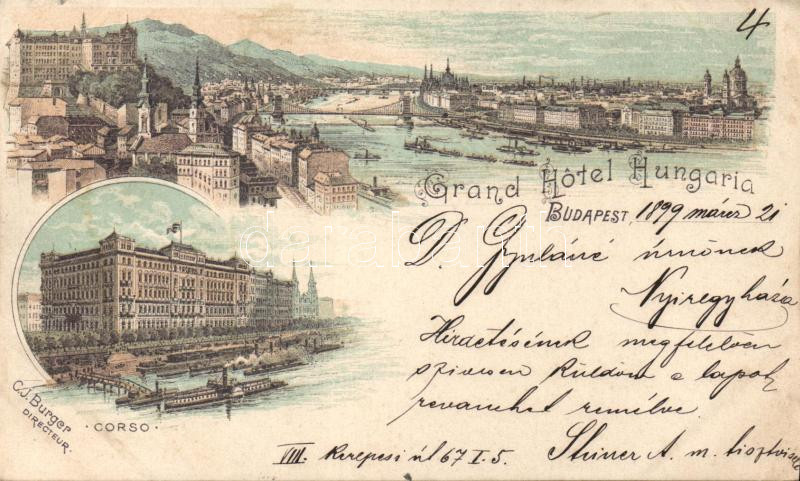 4
Grand Hôtel Hungaria
BUDAPEST, 1899 márcz 21
D. Gyuláné úrnőnek
Nyiregyháza
Hirdetésének megfelelően
szivesen küldöm e lapot
revanchot remélve.
Steiner A. m. tisztviselő
VIII. Kerepesi út 67 I. 5.
HUNGARIA
C.J. Burger
DIRECTEUR.
· CORSO ·
darabanth